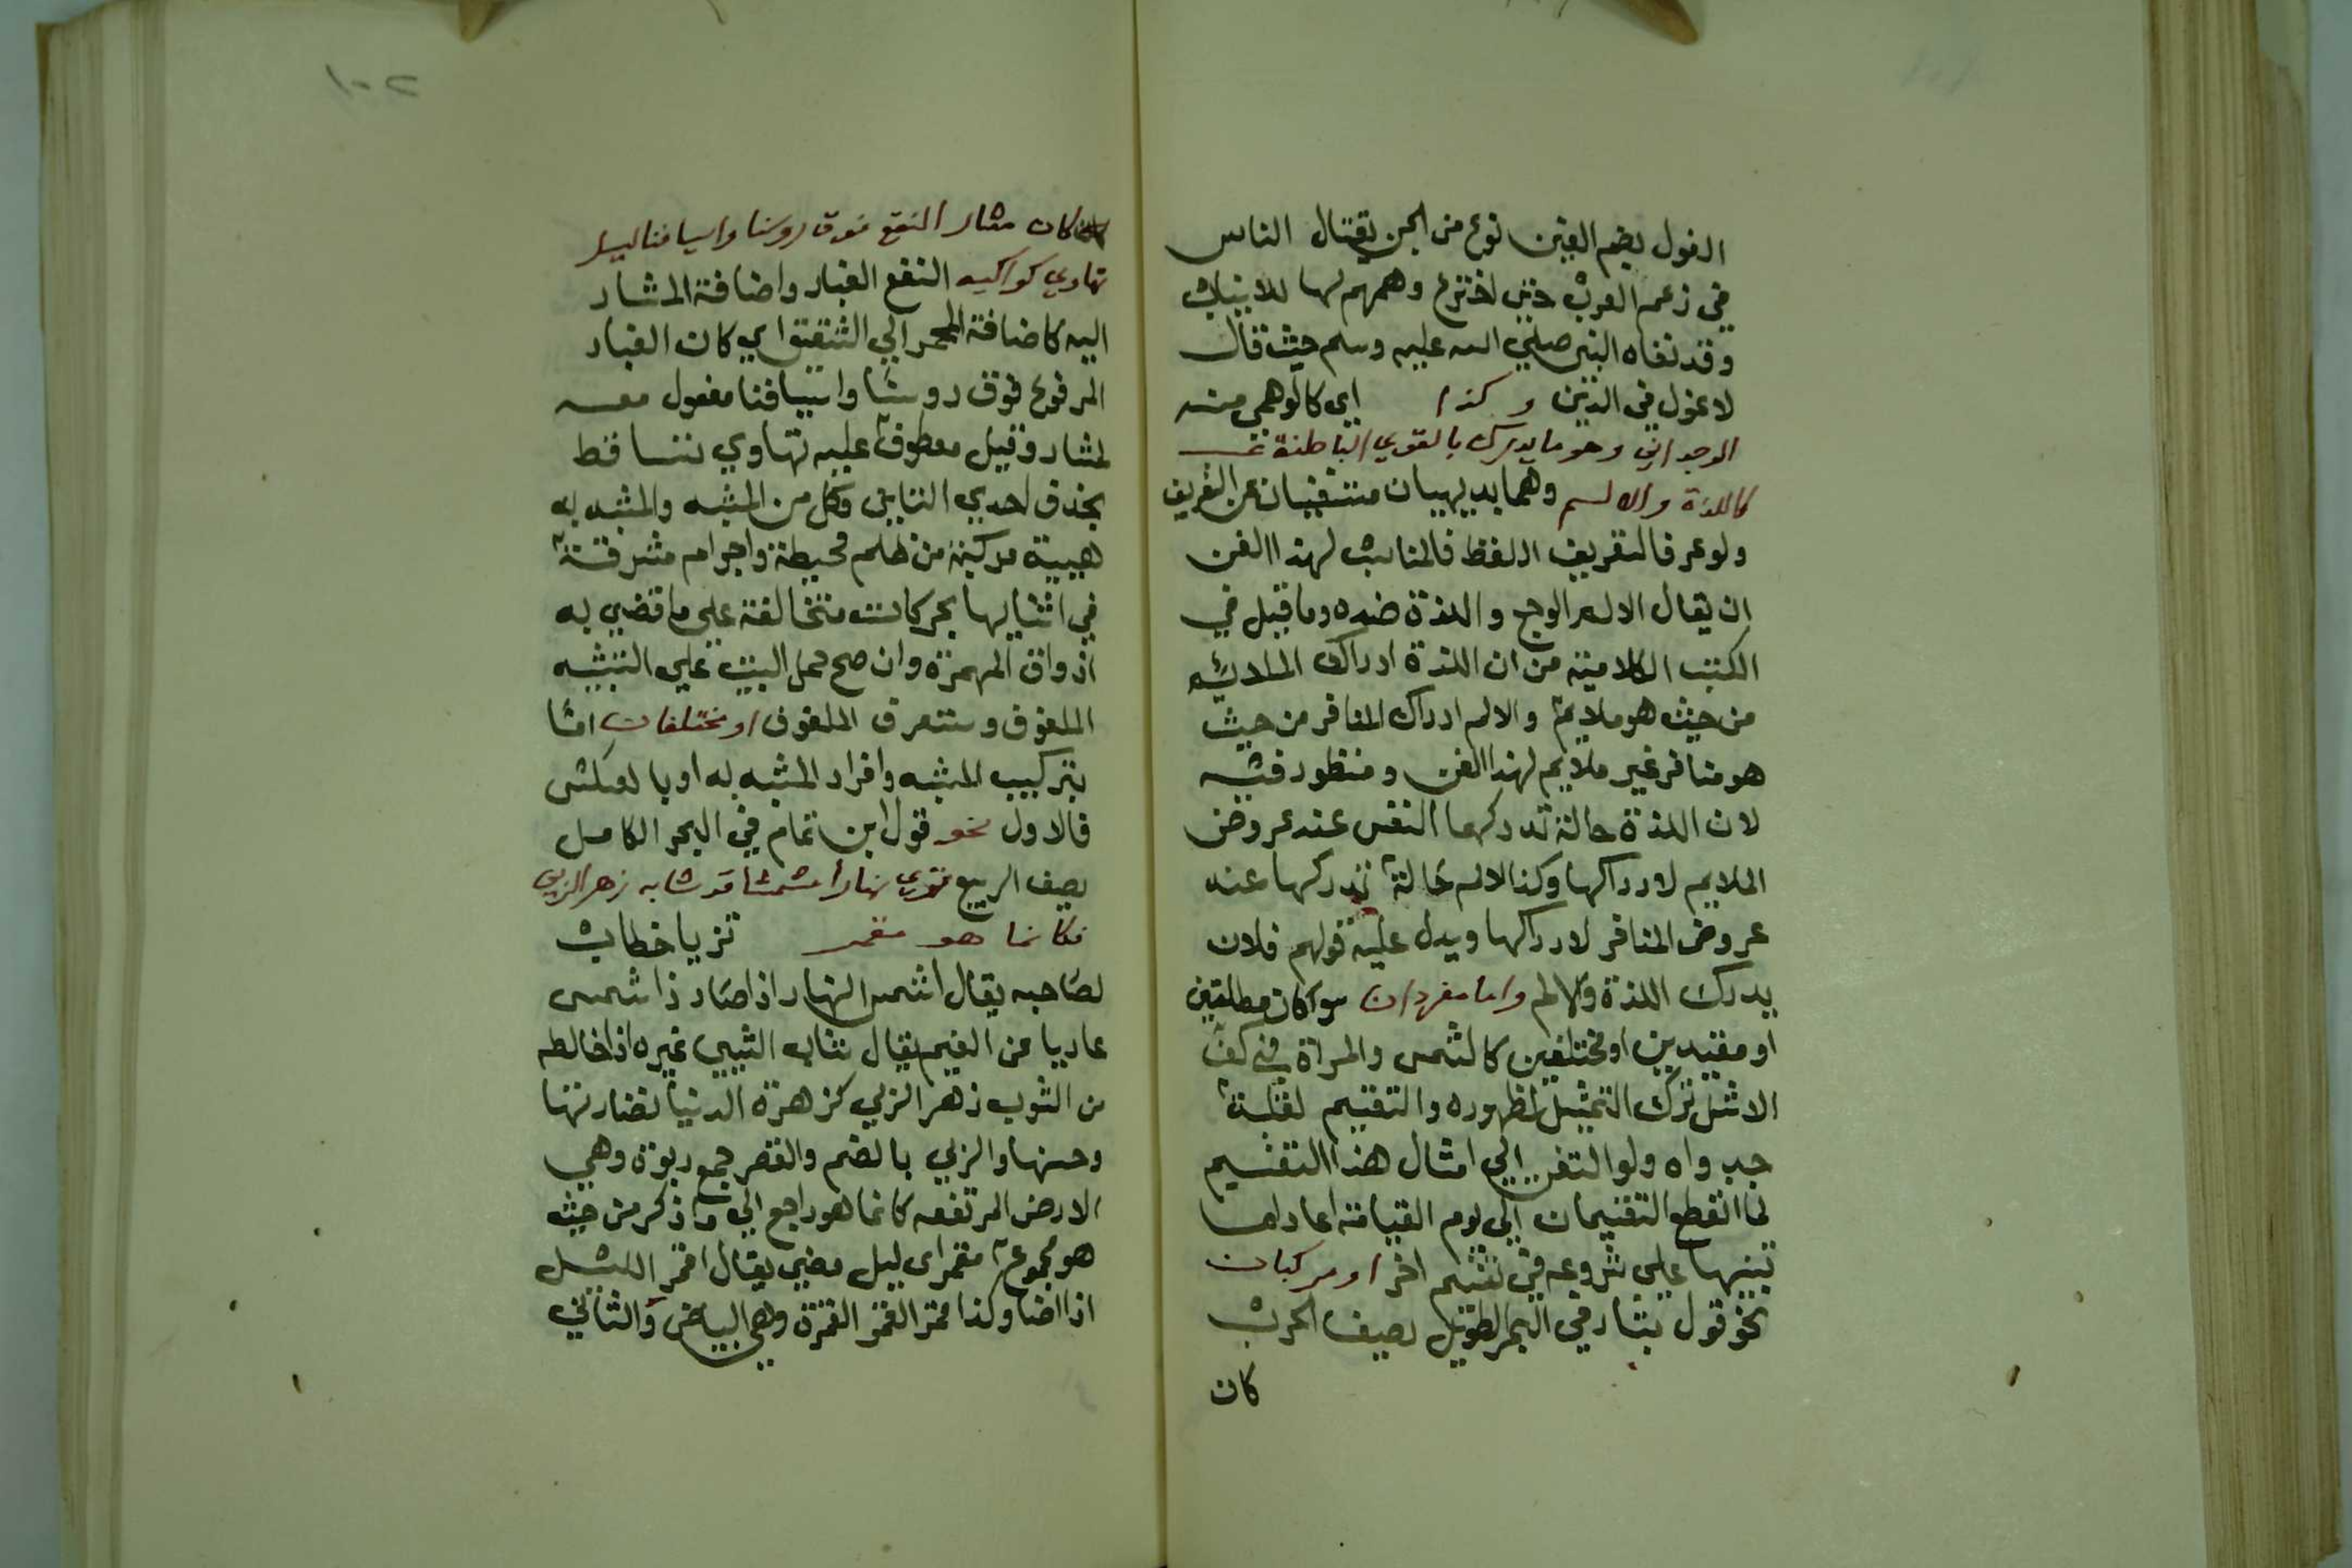 الغول بضم الغين نوع من الجن يقتال الناس
في زعم العرب حتى اخترع وهمهم لها للانياب
وقد نفاه النبي صلي الله عليه وسلم حيث قال
لا غول في الدين وكذا اي كالوهمي منه
الوجداني وهو ما يدرك بالقوي الباطنة
كاللذة والالم وهما بديهيان مستغنيان عن التعريف
ولو عرفا لتعريف اللفظ فالمناسب لهذا الفن
ان يقال الالم الوجع واللذة ضده وما قيل في
الكتب الكلامية من ان اللذة ادراك الملايم
من حيث هو ملايم والالم ادراك المنافر من حيث
هو منافر غير ملايم لهذا الفن ومنظور فيه
لان اللذة حالة تدركها النفس عند عروض
الملايم لادراكها وكذا الالم حالة تدركها عند
عروض المنافر لادراكها ويدل عليه قولهم فلان
يدرك اللذة والالم واما مفردان سواكان مطلقين
او مقيدين او مختلفين كالشمس والمراة في كف
الاشل ترك التمثيل لظهوره والتقسيم لقلة
جدواه ولو التفت الي امثال هذا التقسيم
لما انقطع التقسيمات الي يوم القيامة اعاد اما
تنبيها علي شروعه في تقسيم اخر او مركبان
نحو قول بشار في البحر الطويل يصف الحرب
كان
١٠٢
كان مثار النقع فوق روسنا واسيافنا ليل
تهاوي كواكبه النقع الغبار واضافة المثار
اليه كاضافة المحمر الي الشقيق اي كان الغبار
المرفوع فوق روسنا واسيافنا مفعول معه
لمثار وقيل معطوف عليه تهاوي تتساقط
بحذف احدي التايين وكل من المشبه والمشبه به
هيية مركبة من ظلم محيطة واجرام مشرقة
في اثنايها بحركات متخالفة علي ما قضي به
اذواق المهرة وان صح حمل البيت علي التشبيه
الملفوف وستعرف الملفوف او مختلفان اما
بتركيب المشبه وافراد المشبه به او بالعكس
فالاول نحو قول ابن تمام في البحر الكامل
يصف الربيع تريا نهارا مشمسا قد شابه زهر الربي
فكانما هو مقمر تريا خطاب
لصاحبه يقال اشمس النهار اذا صار ذا شمس
عاريا من الغيم يقال شاب الشيي غيره اذا خالطه
من الشوب زهر الربي كزهرة الدنيا نضارتها
وحسنها والربي بالضم والقصر جمع ربوة وهي
الارض المرتفعه كانما هو راجع الي ما ذكر من حيث
هو مجموع مقمر اي ليل مضي يقال اقمر الليل
اذا اضا وكذا قمر القمر القمرة وهي البياض والثاني